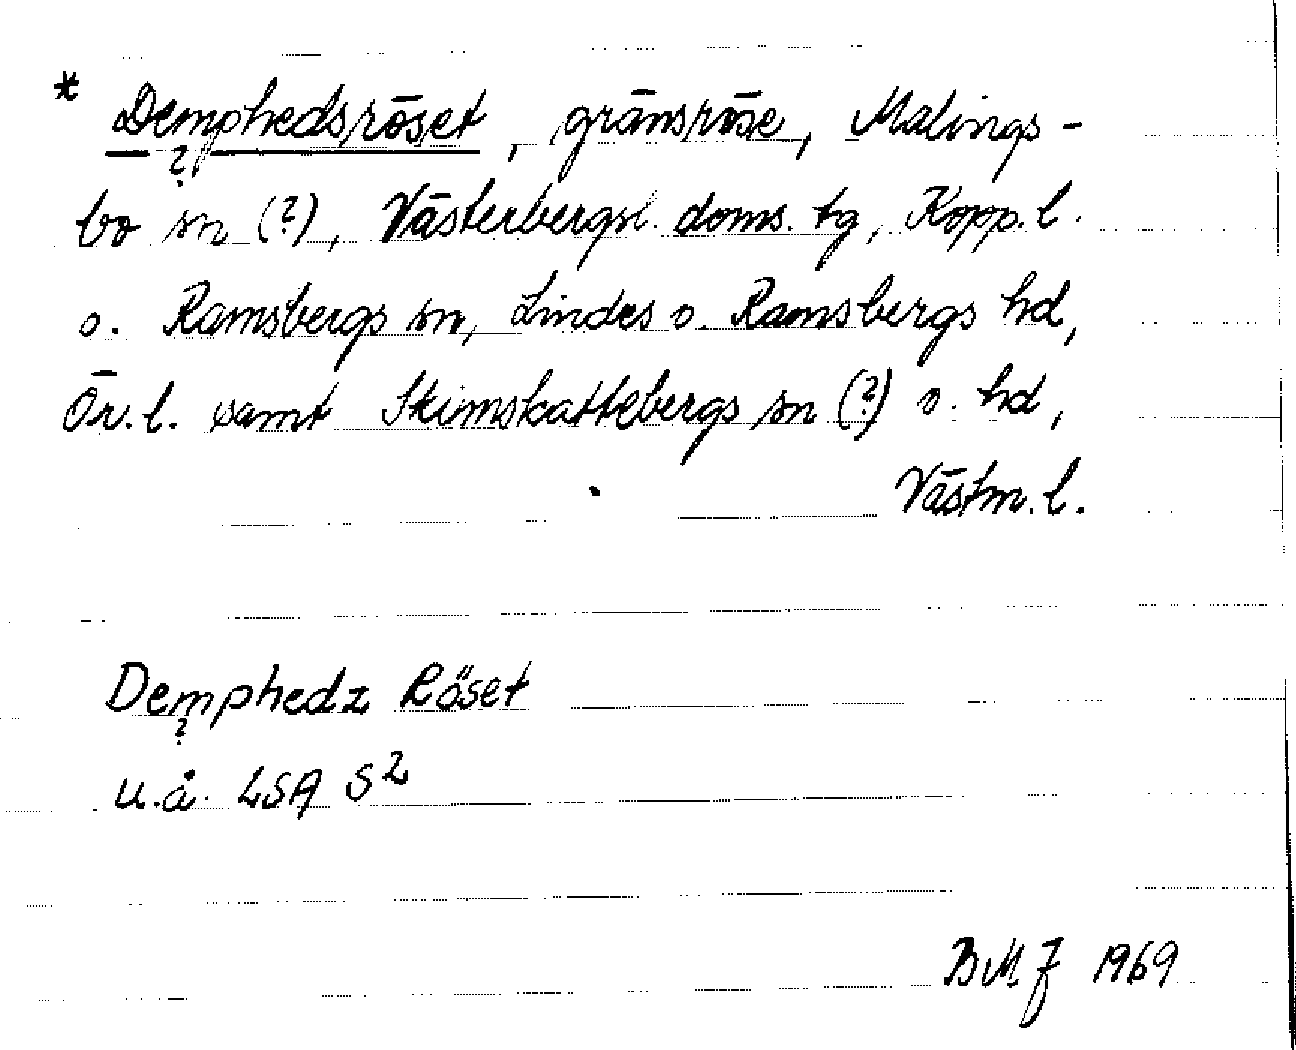 * Demphedsröset, gränsröse, Malings-
?
bo sn (?), Västerbergsl. doms. tg, Kopp. l.
o. Ramsbergs sn, Lindes o. Ramsbergs hd,
Ör. l. samt Skinnskattebergs sn (?) o. hd,
Västm. l.
Demphedz Röset
?
u.å. LSA S2
BMJ 1969